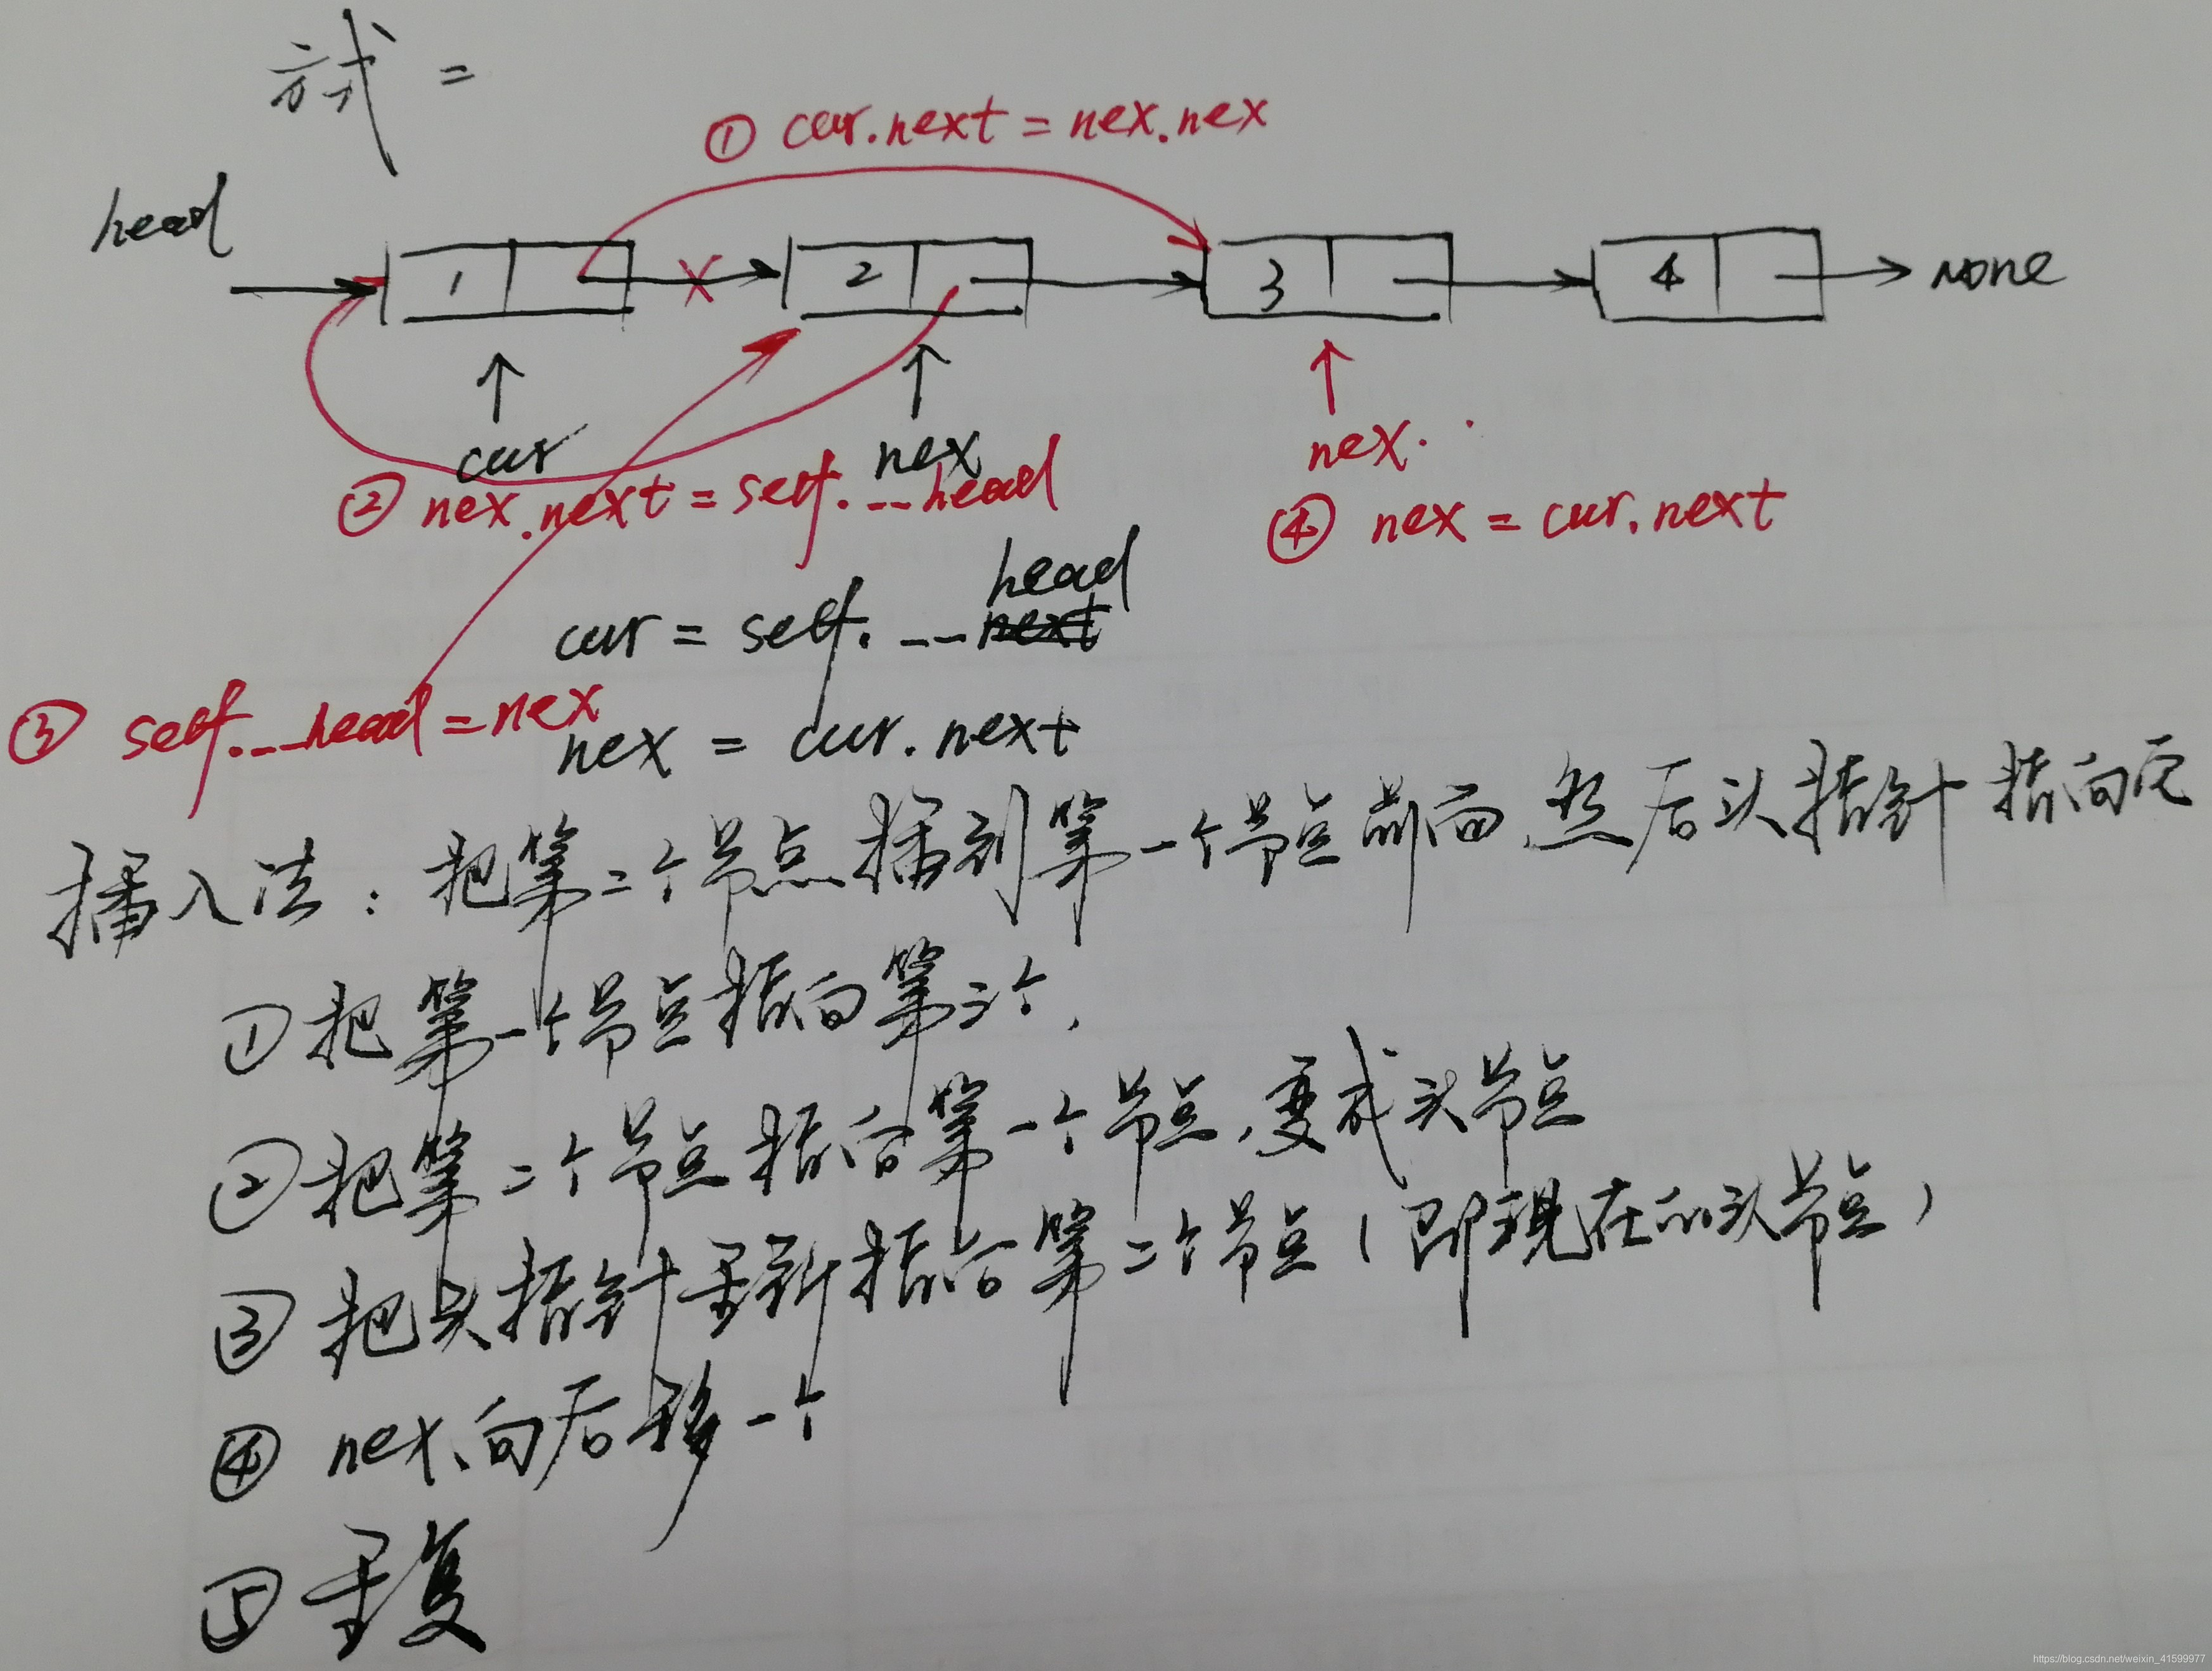 方式二
① cur.next = nex.nex
head
1 2 3 4 None
cur
nex
nex.
② nex.next = self.__head
④ nex = cur.next
head
cur = self.__next
③ self.__head = nex
nex = cur.next
插入法：把第二个节点插到第一个节点前面，然后头指针指向它
①把第一个节点指向第三个，
②把第二个节点指向第一个节点，变成头节点
③把头指针重新指向第二个节点（即现在的头节点）
④ nex、向后移一个
⑤重复
https://blog.csdn.net/weixin_41599977